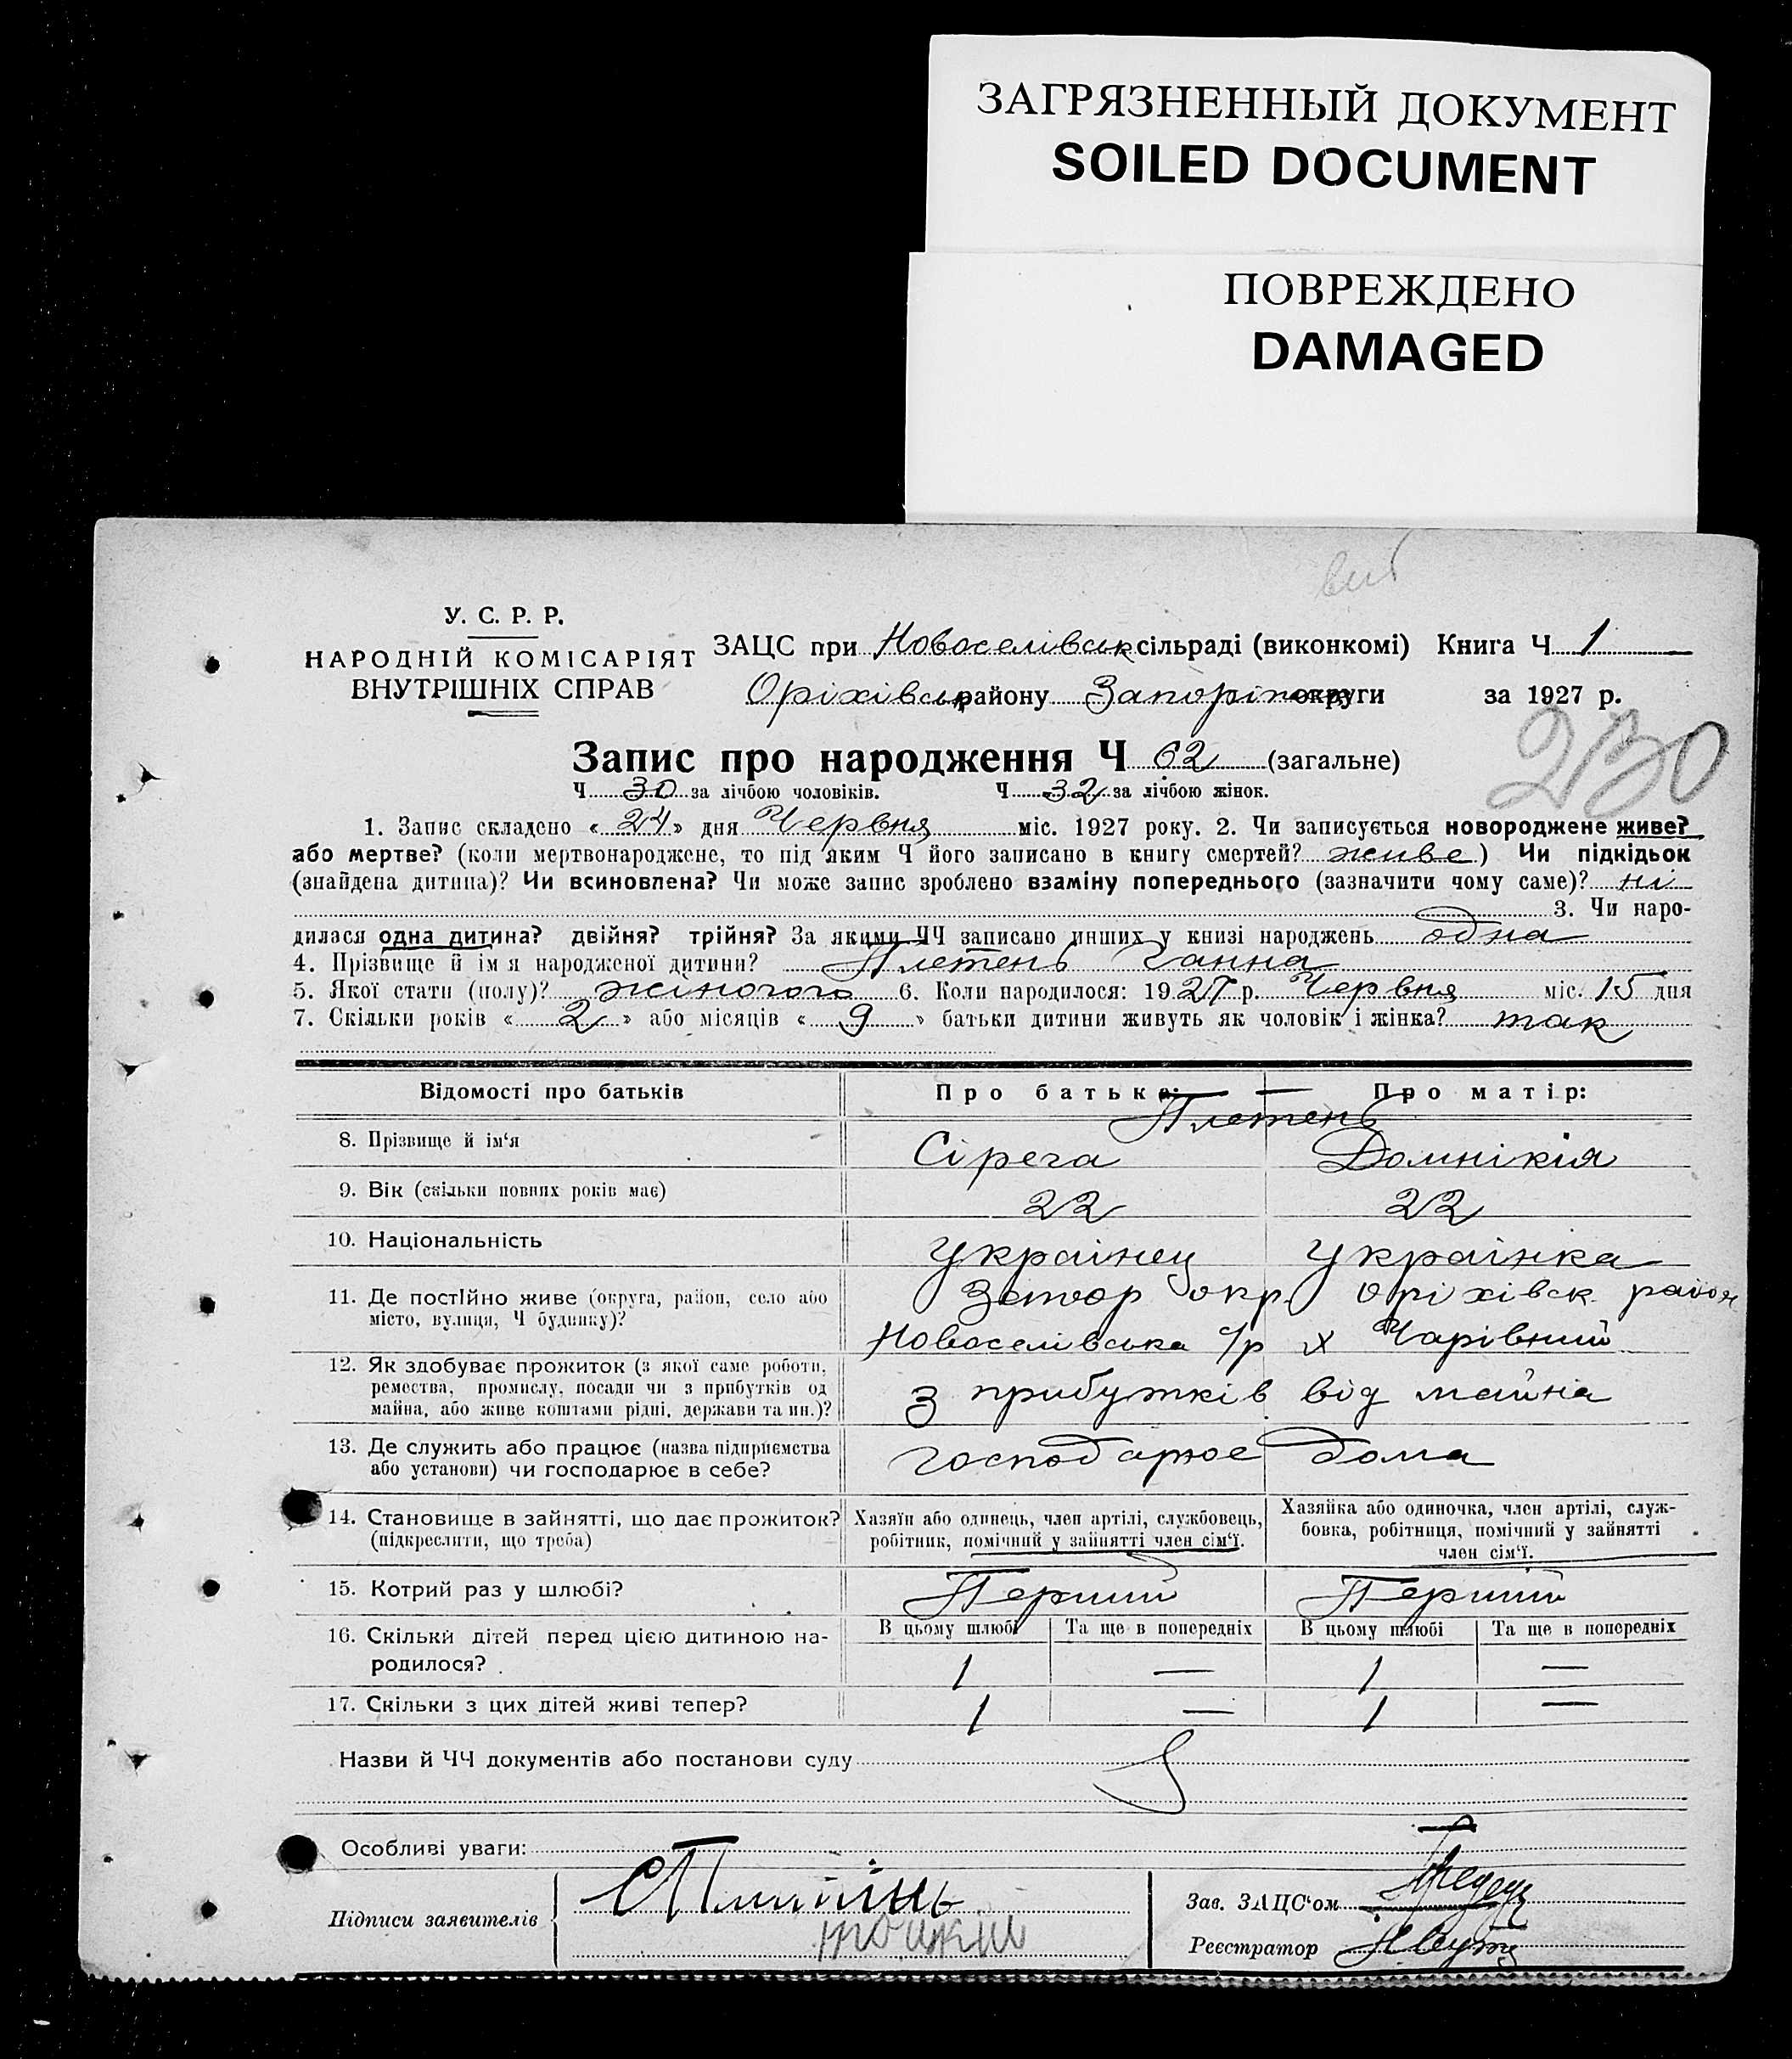 ЗАГРЯЗНЕННЫЙ ДОКУМЕНТ
SOILED DOCUMENT
ПОВРЕЖДЕНО
DAMAGED
У. С. Р. Р.
НАРОДНІЙ КОМІСАРІЯТ
ВНУТРІШНІХ СПРАВ
ЗАЦС при Новоселівськ сільраді (виконкомі) Книга Ч 1
Оріхівськ району Запоріж округи за 1927 р.
230
Запис про народження Ч 62 (загальне)
Ч 30 за лічбою чоловіків. Ч 32 за лічбою жінок.
1. Запис складено « 24 » дня Червня міс. 1927 року. 2. Чи записується новороджене живе?
або мертве? (коли мертвонароджене, то під яким Ч його записано в книгу смертей? живе) Чи підкідьок
(знайдена дитина)? Чи всиновлена? Чи може запис зроблено взаміну попереднього (зазначити чому саме)? ні
3. Чи наро-
дилася одна дитина? двійня? трійня? За якими ЧЧ записано инших у книзі народжень одна
4. Прізвище й ім я народженої дитини? Плетень Ганна
5. Якої стати (полу)? жіночого 6. Коли народилося: 1927 р. Червня міс. 15 дня
7. Скільки років « 2 » або місяців « 9 » батьки дитини живуть як чоловік і жінка? так
Відомості про батьків Про батька: Про матір:
Плетень
8. Прізвище й ім'я Сірега Домнікія
9. Вік (скільки повних років має) 22 22
10. Національність Українец Українка
11. Де постійно живе (округа, район, село або місто, вулиця, Ч будинку)? Запор окр. Оріхівск. район
Новоселівська с/р х Чарівний
12. Як здобуває прожиток (з якої саме роботи,
ремества, промислу, посади чи з прибутків од
майна, або живе коштами рідні, держави та ин.)? з прибутків від майна
13. Де служить або працює (назва підприємства
або установи) чи господарює в себе? господарює дома
14. Становище в зайнятті, що дає прожиток?
(підкреслити, що треба)
Хазяїн або одинець, член артілі, службовець,
робітник, помічний у зайнятті член сім'ї.
Хазяйка або одиночка, член артілі, служ-
бовка, робітниця, помічний у зайнятті
член сім'ї.
15. Котрий раз у шлюбі? Перший Перший
16. Скільки дітей перед цією дитиною на-
родилося?
В цьому шлюбі Та ще в попередніх В цьому шлюбі Та ще в попередніх
1 — 1 —
17. Скільки з цих дітей живі тепер? 1 — 1 —
Назви й ЧЧ документів або постанови суду
Особливі уваги:
Підписи заявителів
Зав. ЗАЦС'ом
Реєстратор